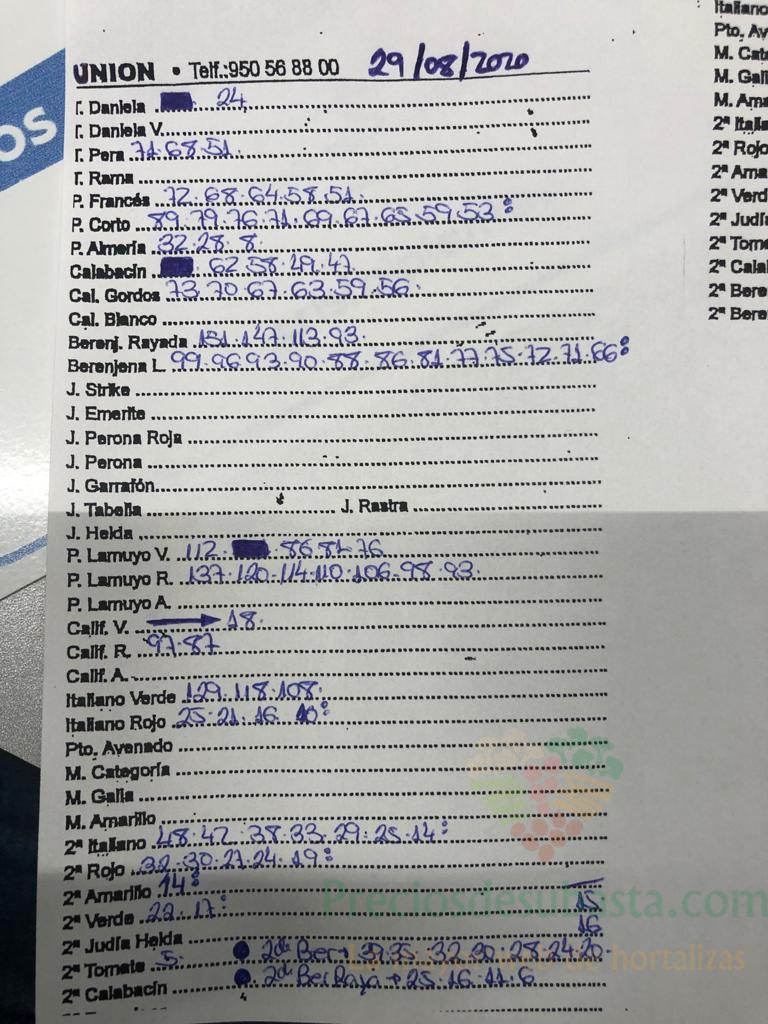 UNION • Telf.:950 56 88 00 29/08/2020
T. Daniela 24
T. Daniela V.
T. Pera 71.68.51.
T. Rama
P. Francés 72.68.64.58.51.
P. Corto 89.79.76.71.69.67.65.59.53:
P. Almería 32.28.8.
Calabacín 62.58.49.47
Cal. Gordos 73.70.67.63.59.56.
Cal. Blanco
Berenj. Rayada 151.147.113.93.
Berenjena L. 99.96.93.90.88.86.81.77.75.72.71.66:
J. Strike
J. Emerite
J. Perona Roja
J. Perona
J. Garrafón
J. Tabella J. Rastra
J. Helda
P. Lamuyo V. 112. 86.81.76
P. Lamuyo R. 137.120.114.110.106.98.93.
P. Lamuyo A.
Calif. V. → 18.
Calif. R. 97.87
Calif. A.
Italiano Verde 129.118.108.
Italiano Rojo 25.21.16.10:
Pto. Avenado
M. Categoría
M. Galia
M. Amarillo
2ª Italiano 48.42.38.33.29.25.14:
2ª Rojo 32.30.27.24.19:
2ª Amarillo 14:
2ª Verde 22.17: 15
2ª Judía Helda 16
2ª Tomate 5. • 2da Ber → 37.35.32.30.28.24.20
2ª Calabacín • 2da Ber Raya → 25.16.11.6
Preciosdesubasta.com
hortalizas
OS
Italiano
Pto. Av
M. Cate
M. Gali
M. Ama
2ª Itali
2ª Rojo
2ª Ama
2ª Verd
2ª Judí
2ª Toma
2ª Calal
2ª Bere
2ª Bere